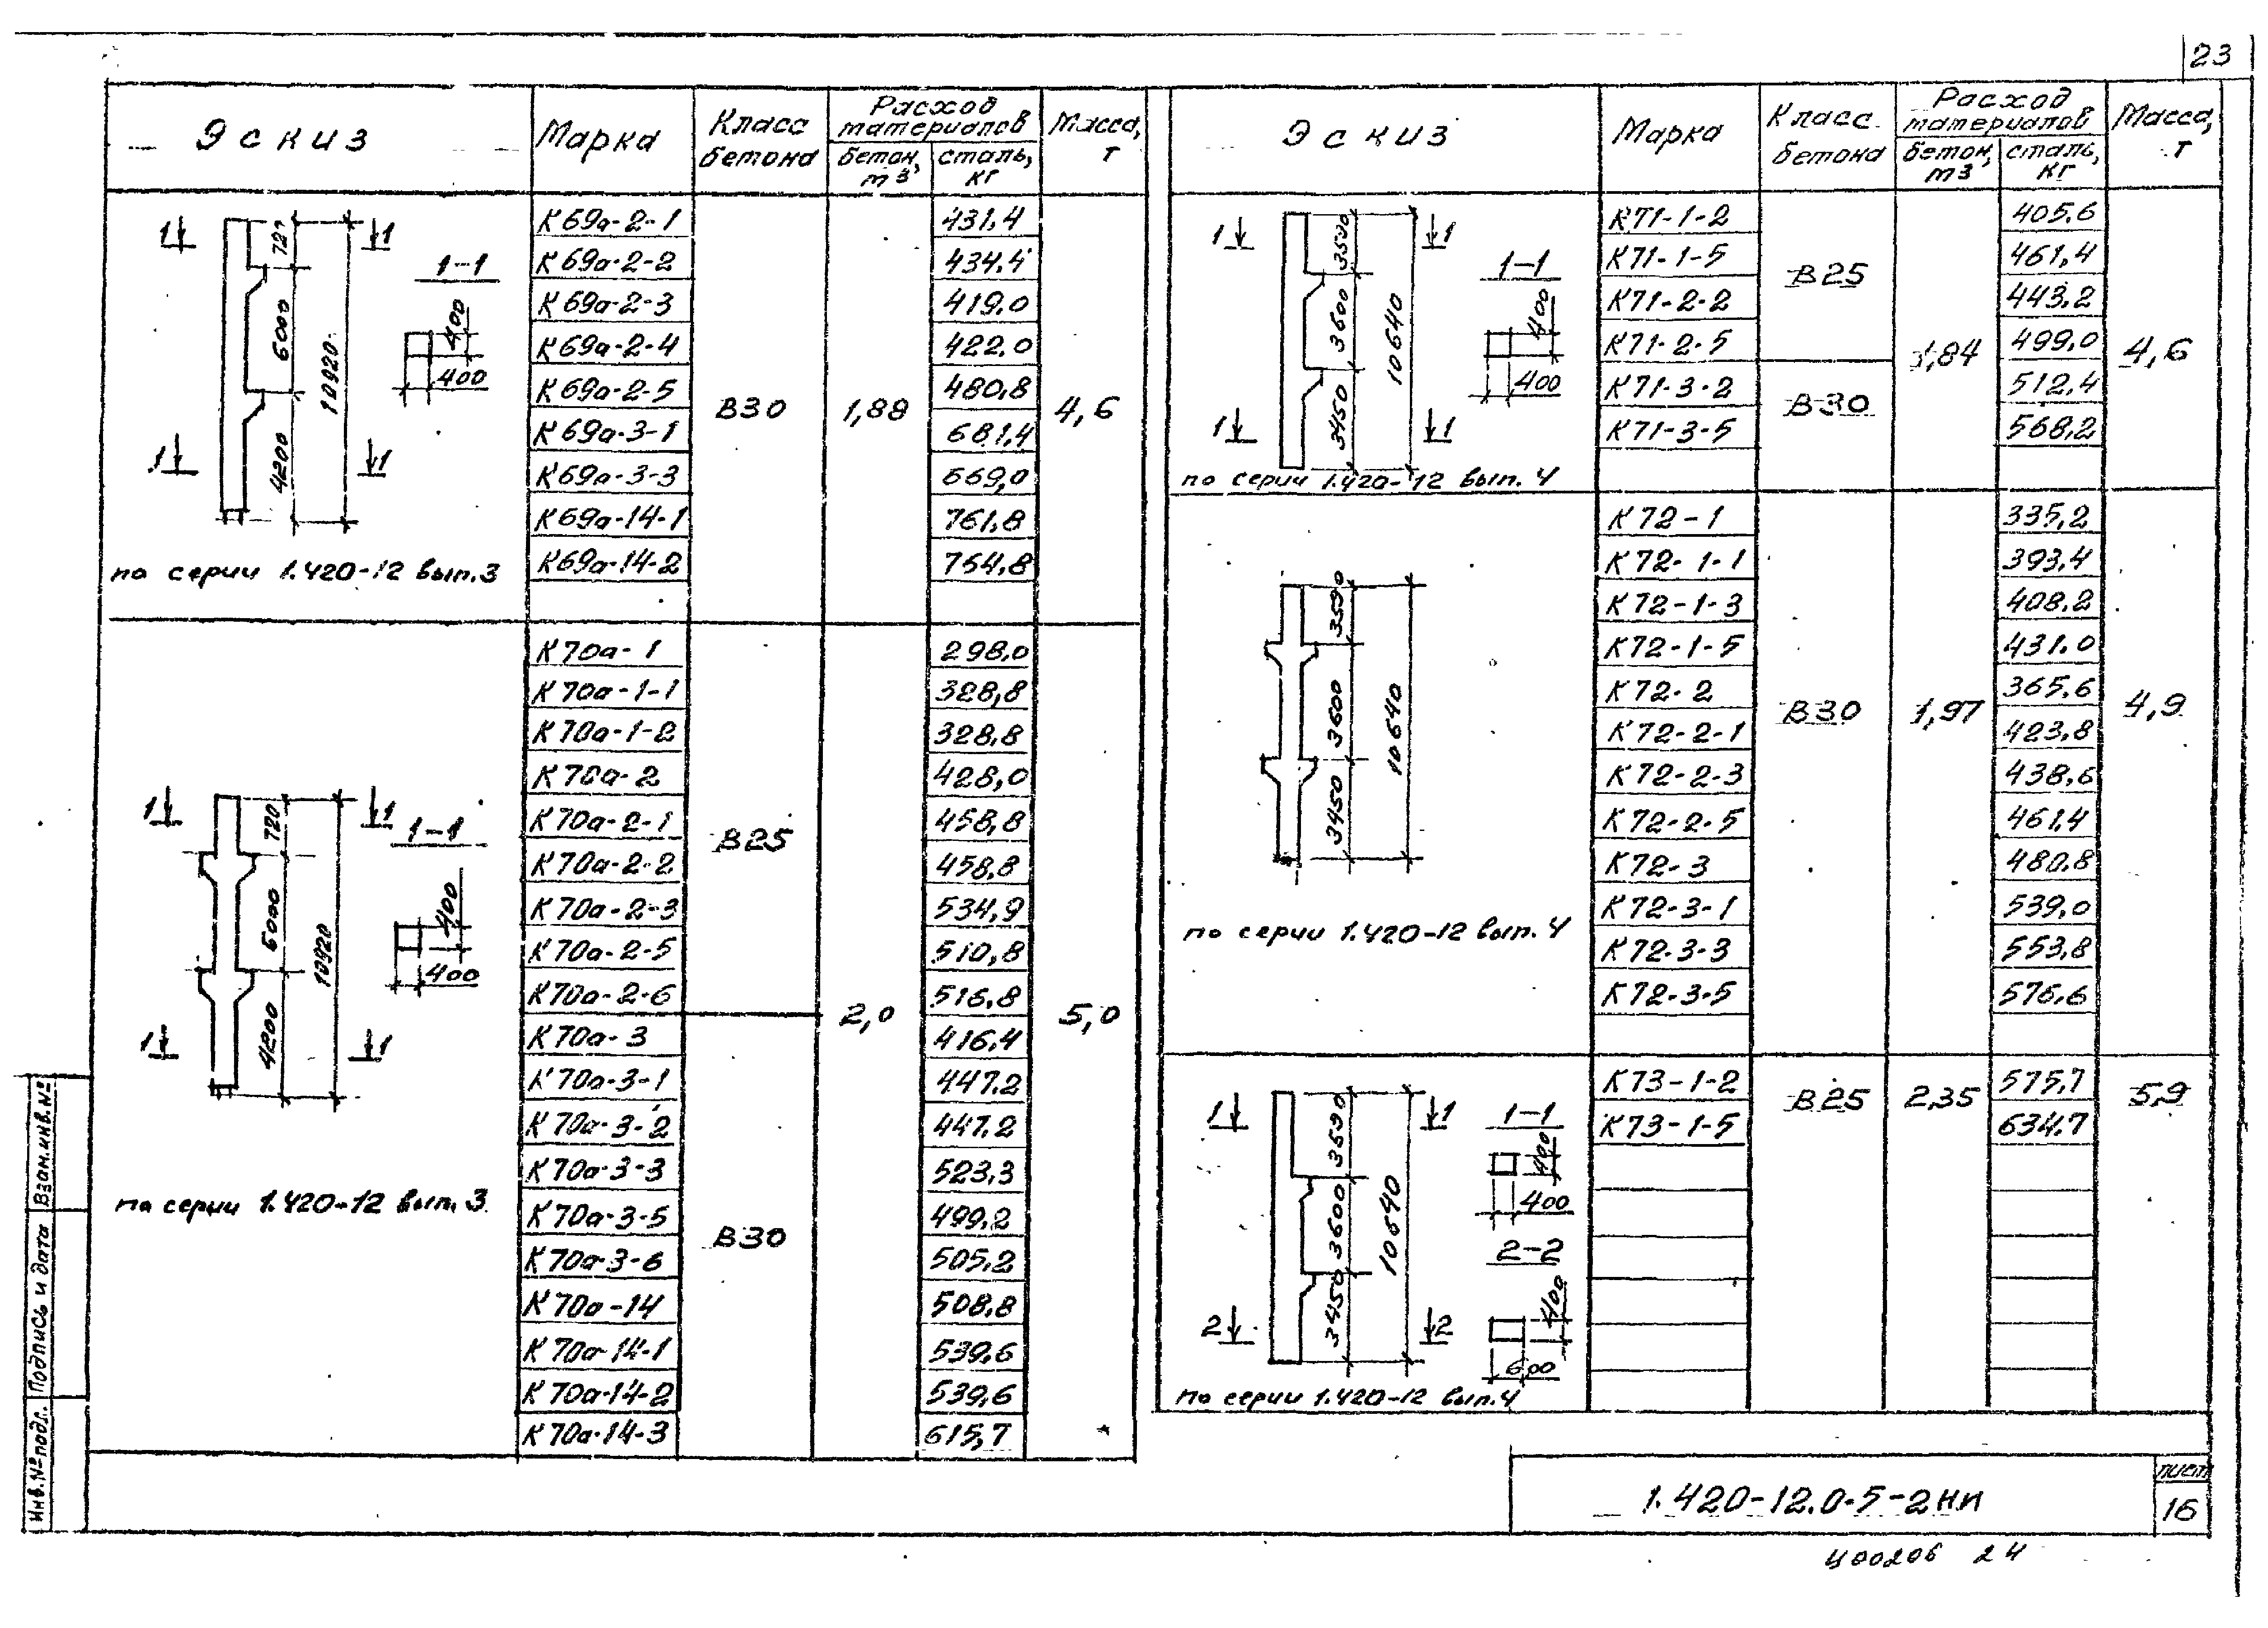 23
Эскиз
Марка
Класс бетона
Расход материалов
бетон, м3
сталь, кг
Масса, т
1 1
1-1
720
6000
4200
10920
400
400
1 1
по серии 1.420-12 вып.3
К69а-2-1 431,4
К69а-2-2 434,4
К69а-2-3 419,0
К69а-2-4 422,0
К69а-2-5 480,8
К69а-3-1 681,4
К69а-3-3 669,0
К69а-14-1 761,8
К69а-14-2 754,8
В30 1,88 4,6
1 1
1-1
720
6000
4200
10920
400
400
1 1
по серии 1.420-12 вып.3
К70а-1 298,0
К70а-1-1 328,8
К70а-1-2 328,8
К70а-2 428,0
К70а-2-1 458,8
К70а-2-2 458,8
К70а-2-3 534,9
К70а-2-5 510,8
К70а-2-6 516,8
В25
К70а-3 416,4
К70а-3-1 447,2
К70а-3-2 447,2
К70а-3-3 523,3
К70а-3-5 499,2
К70а-3-6 505,2
К70а-14 508,8
К70а-14-1 539,6
К70а-14-2 539,6
К70а-14-3 615,7
В30
2,0 5,0
Эскиз
Марка
Класс бетона
Расход материалов
бетон, м3
сталь, кг
Масса, т
1 1
1-1
3590
3600
3450
10640
400
400
1 1
по серии 1.420-12 вып.4
К71-1-2 405,6
К71-1-5 461,4
К71-2-2 443,2
К71-2-5 499,0
В25
К71-3-2 512,4
К71-3-5 568,2
В30
1,84 4,6
3590
3600
3450
10640
по серии 1.420-12 вып.4
К72-1 335,2
К72-1-1 393,4
К72-1-3 408,2
К72-1-5 431,0
К72-2 365,6
К72-2-1 423,8
К72-2-3 438,6
К72-2-5 461,4
К72-3 480,8
К72-3-1 539,0
К72-3-3 553,8
К72-3-5 576,6
В30 1,97 4,9
1 1
1-1
3590
3600
3450
10640
400
400
2-2
400
600
2 2
по серии 1.420-12 вып.4
К73-1-2 575,7
К73-1-5 634,7
В25 2,35 5,9
Взам.инв.№
Подпись и дата
Инв.№ подл.
1.420-12.0-5-2НИ
лист
16
Ц00206 24